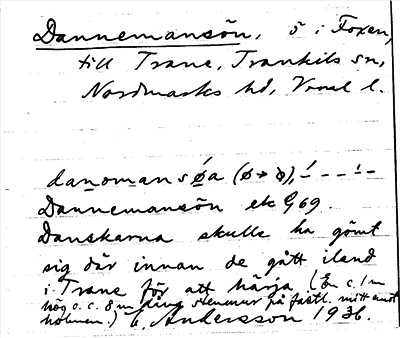 Dannemansön, ö i Foxen,
till Trane, Trankils sn,
Nordmarks hd, Vrml l.
danomansøa (ø→ꝋ), ´– – – ´ –
Dannemansön ek G69.
Danskarna skulle ha gömt
sig där innan de gått iland
i Trane för att härja (En c. 1 m
hög o. c. 8 m lång stenmur på fastl. mitt emot
holmen.) E. Andersson 1936.